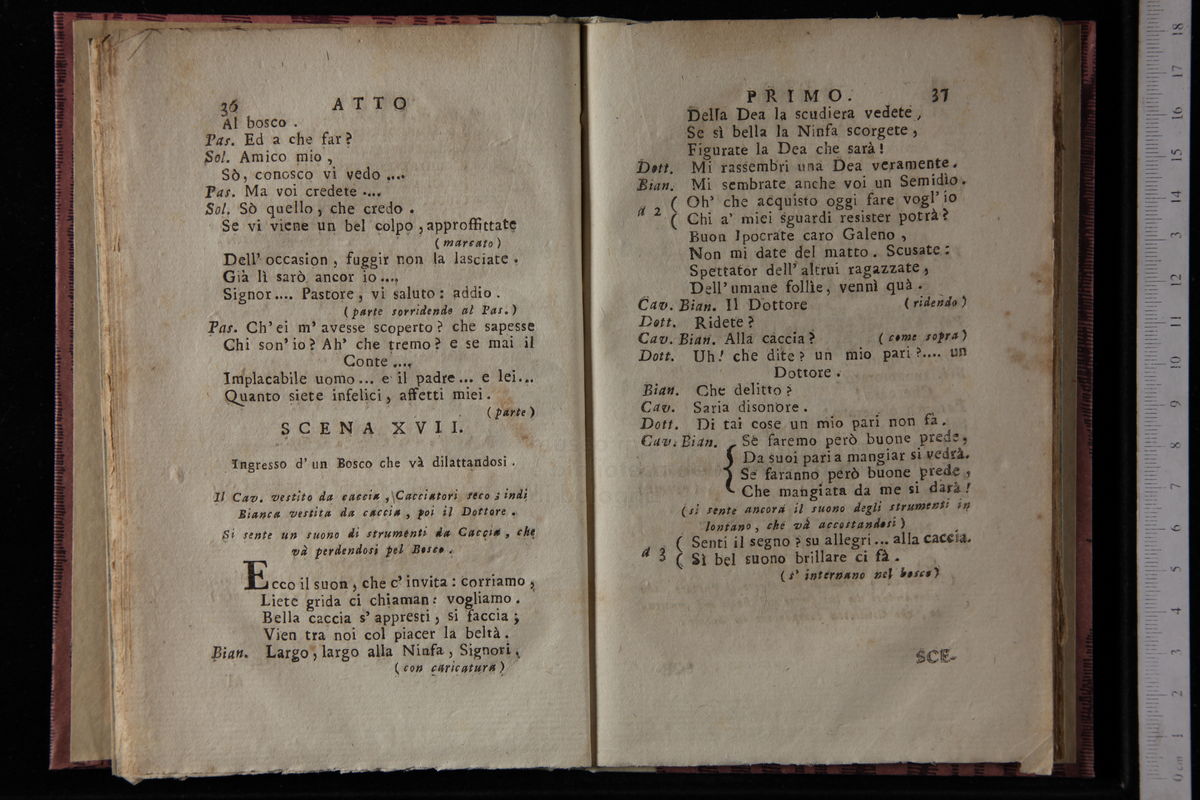 36 ATTO
Al bosco .
Pas. Ed a che far?
Sol. Amico mio ,
Sò, conosco vi vedo ....
Pas. Ma voi credete ....
Sol. Sò quello, che credo .
Se vi viene un bel colpo , approffittate
(marcato)
Dell' occasion, fuggir non la lasciate .
Già lì sarò ancor io ....
Signor.... Pastore, vi saluto: addio .
(parte sorridendo al Pas.)
Pas. Ch' ei m' avesse scoperto? che sapesse
Chi son' io? Ah' che tremo? e se mai il
Conte ....
Implacabile uomo ... e il padre ... e lei...
Quanto siete infelici, affetti miei .
(parte)
SCENA XVII.
Ingresso d' un Bosco che và dilattandosi .
Il Cav. vestito da caccia , Cacciatori seco ; indi
Bianca vestita da caccia , poi il Dottore .
Si sente un suono di strumenti da Caccia , che
và perdendosi pel Bosco .
Ecco il suon, che c' invita : corriamo ,
Liete grida ci chiaman: vogliamo .
Bella caccia s' appresti, si faccia ;
Vien tra noi col piacer la beltà .
Bian. Largo, largo alla Ninfa, Signori ,
(con caricatura)
PRIMO. 37
Della Dea la scudiera vedete ,
Se sì bella la Ninfa scorgete ,
Figurate la Dea che sarà !
Dott. Mi rassembri una Dea veramente .
Bian. Mi sembrate anche voi un Semidio .
a 2 ( Oh' che acquisto oggi fare vogl' io
( Chi a' miei sguardi resister potrà ?
Buon Ipocrate caro Galeno ,
Non mi date del matto . Scusate :
Spettator dell' altrui ragazzate ,
Dell' umane follìe, vennì quà .
Cav. Bian. Il Dottore (ridendo)
Dott. Ridete ?
Cav. Bian. Alla caccia ? (come sopra)
Dott. Uh! che dite ? un mio pari ?.... un
Dottore .
Bian. Che delitto ?
Cav. Saria disonore .
Dott. Di tai cose un mio pari non fà .
Cav. Bian. { Se faremo però buone prede ,
Da suoi pari a mangiar si vedrà.
Se faranno però buone prede ,
Che mangiata da me si darà !
(si sente ancora il suono degli strumenti in
lontano , che và accostandosi)
a 3 ( Senti il segno ? su allegri ... alla caccia.
( Sì bel suono brillare ci fà .
(s' internano nel bosco)
SCE-